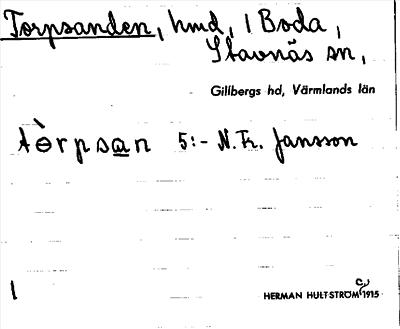 Torpsanden, hmd, 1 Boda,
Stavnäs sn,
Gillbergs hd, Värmlands län
tòrpsan 5:- N. Fr. Jansson
1
HERMAN HULTSTRÖM c. 1915